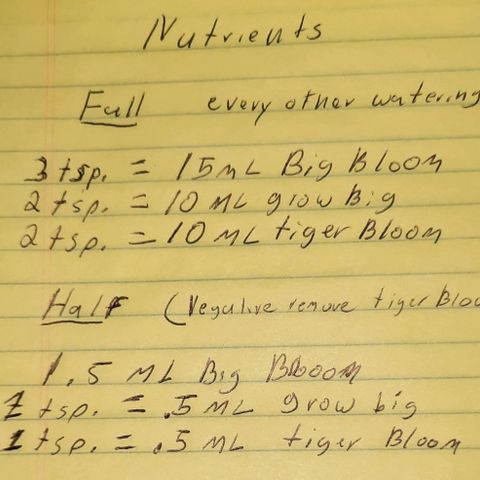 Nutrients
Full every other watering
3 tsp. = 15mL Big Bloom
2 tsp. = 10 mL grow big
2 tsp. = 10 mL tiger Bloom
Half (Vegative remove tiger Bloo
1.5 mL Big Bloom
1 tsp. = .5 mL grow big
1 tsp. = .5 mL tiger Bloom